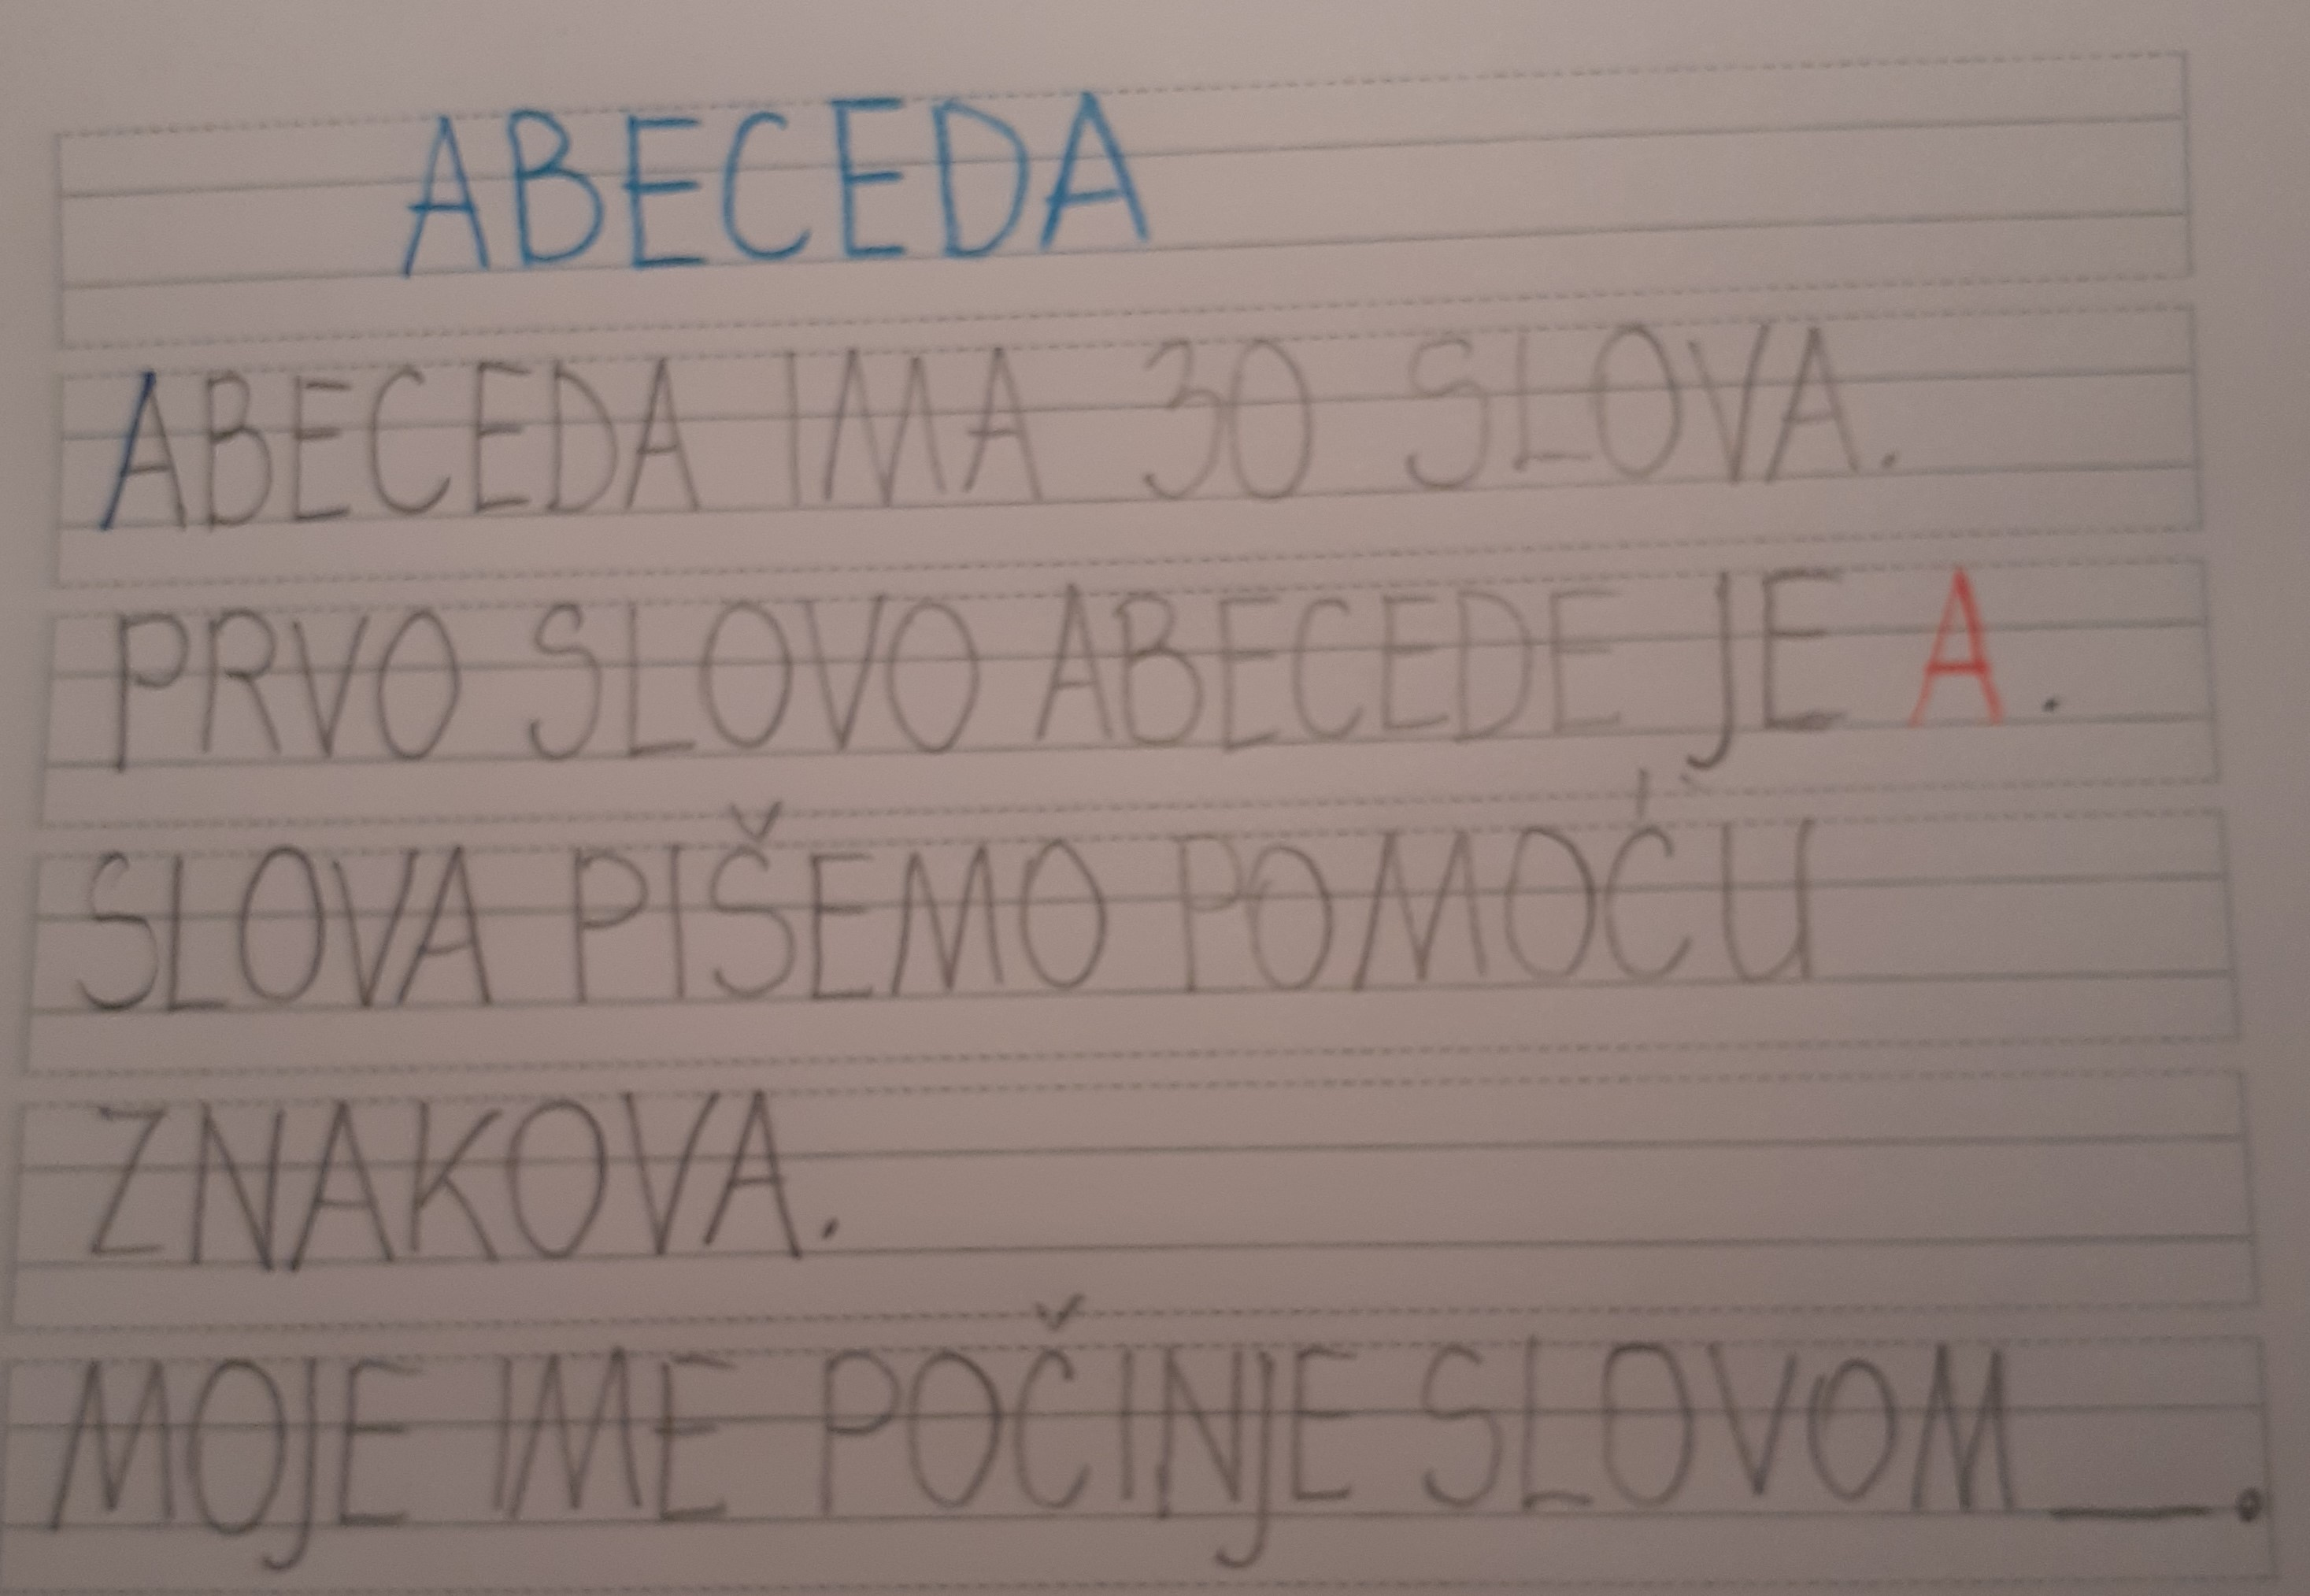 ABECEDA
ABECEDA IMA 30 SLOVA.
PRVO SLOVO ABECEDE JE A.
SLOVA PIŠEMO POMOĆU
ZNAKOVA.
MOJE IME POČINJE SLOVOM __.